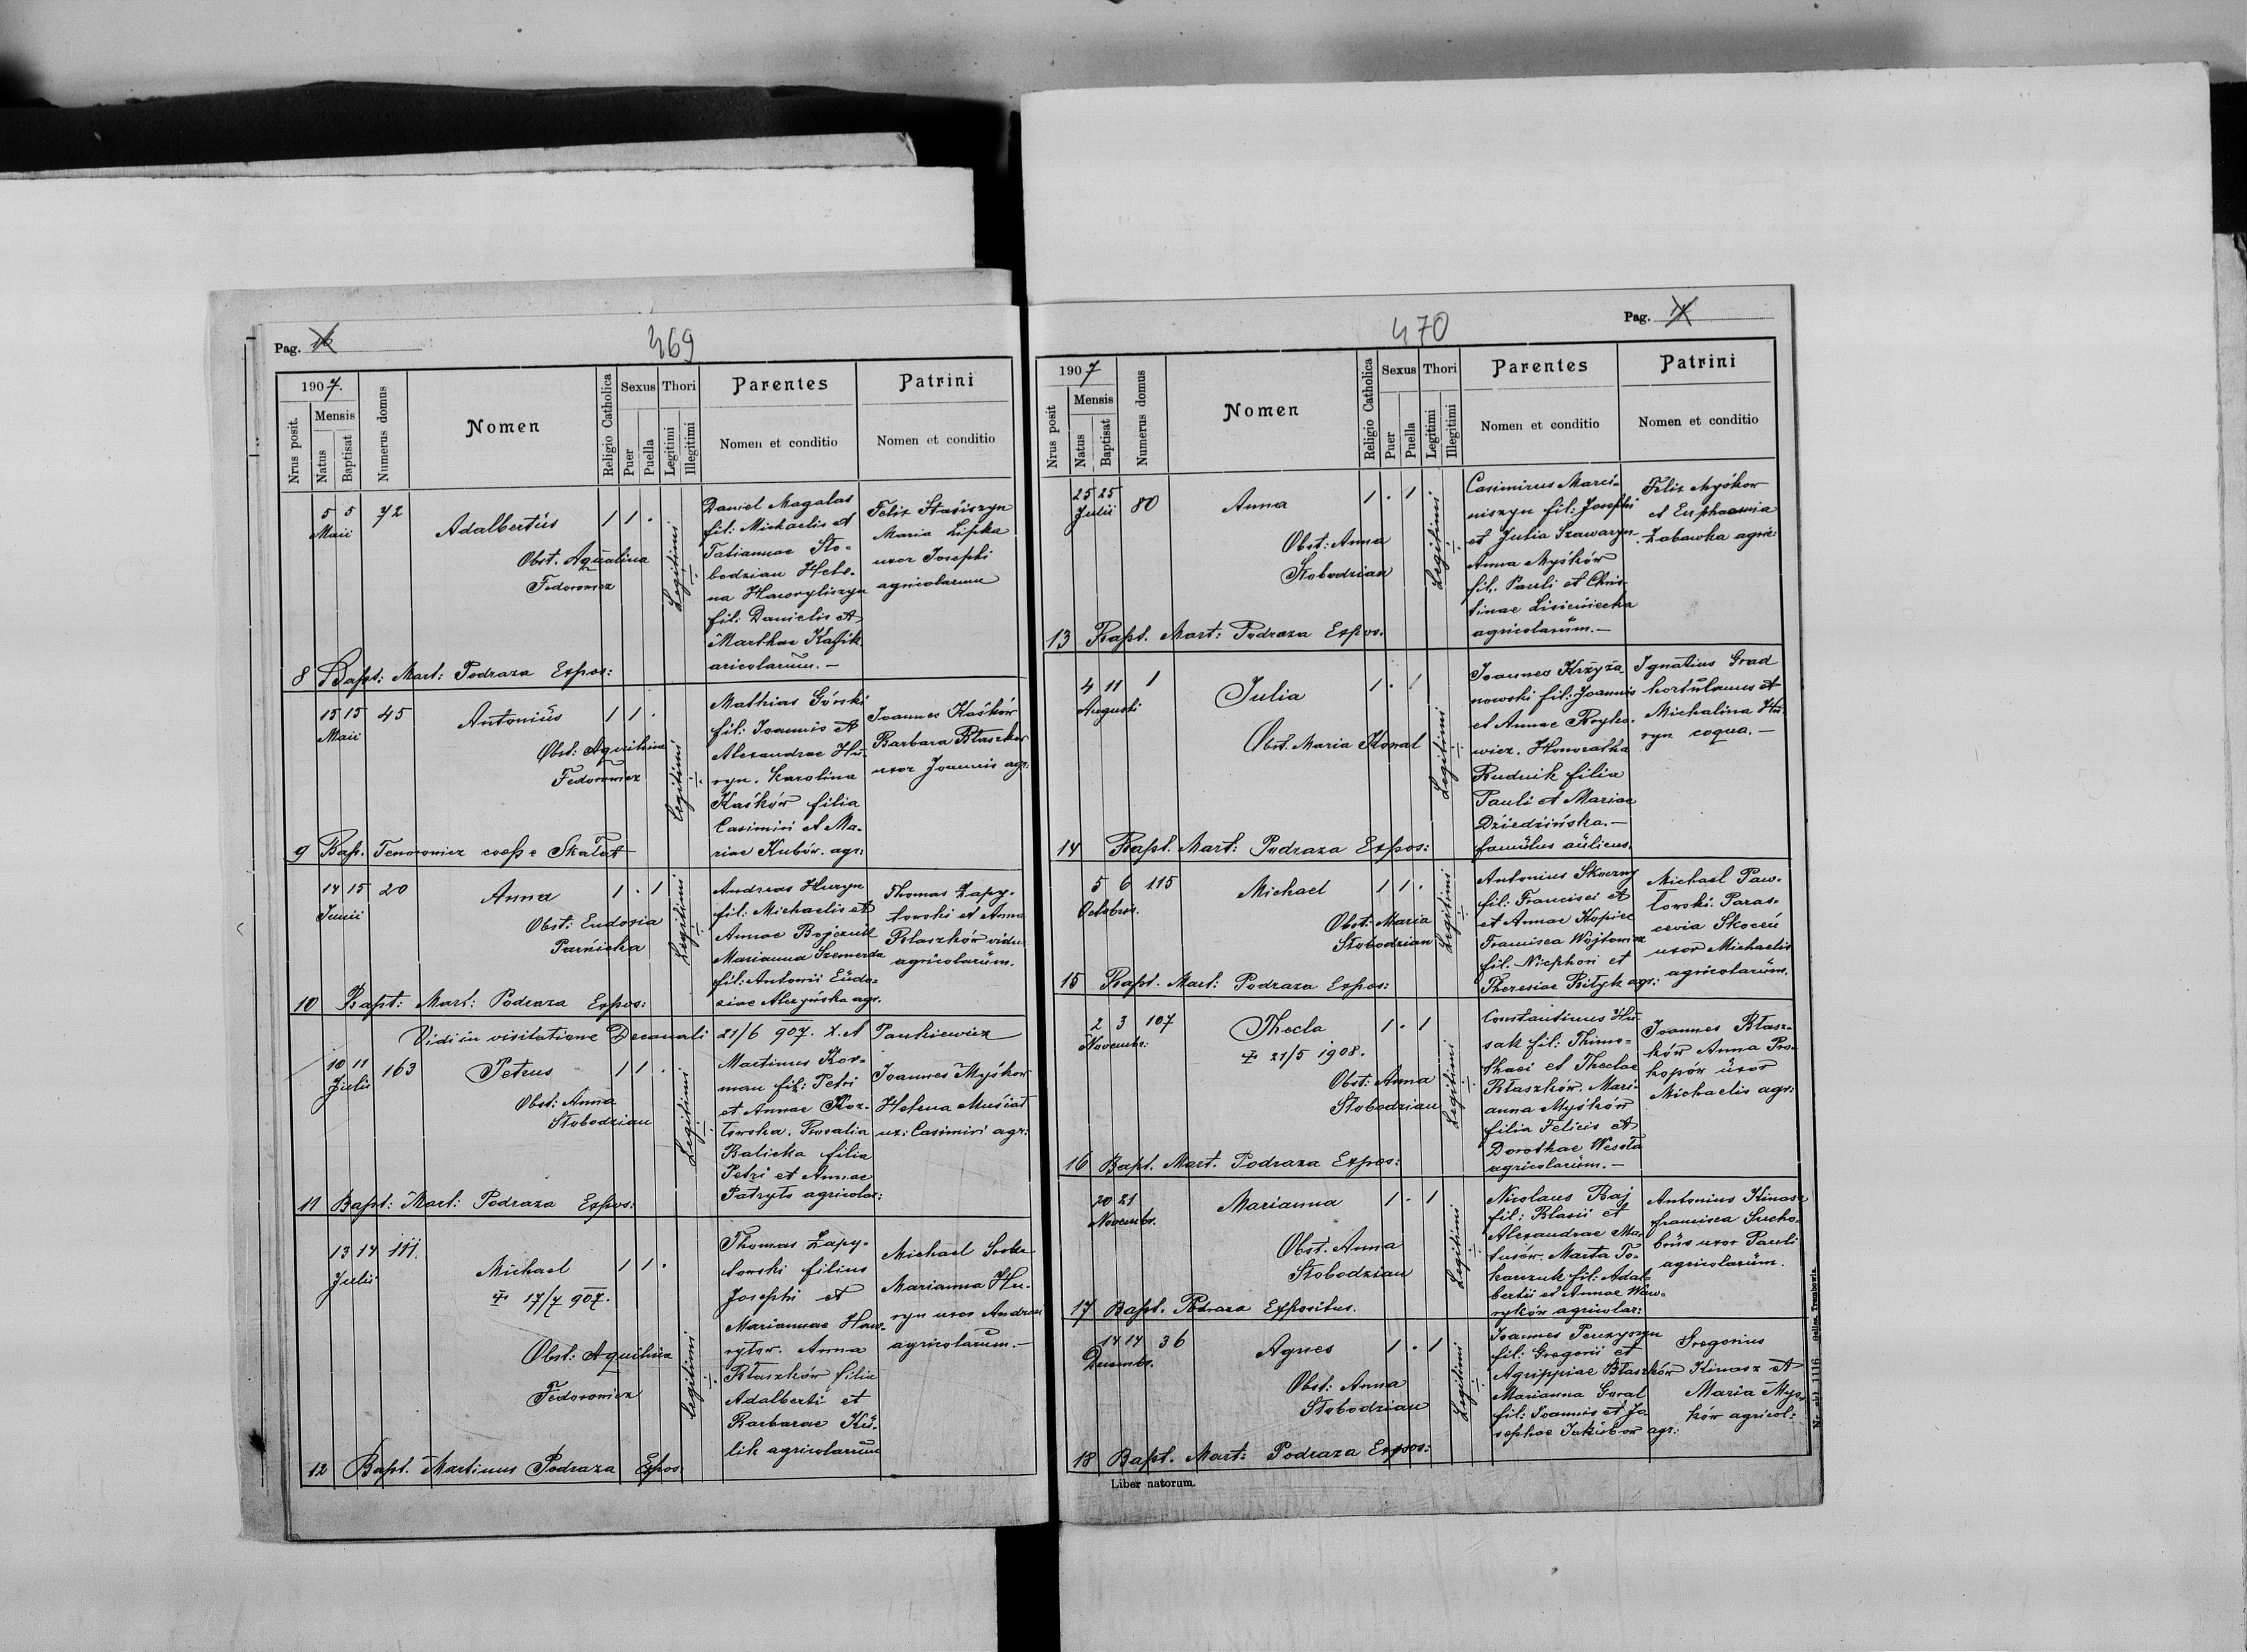 Pag. 16
469
1907.
Nrus posit.
Mensis
Natus
Baptisat
Numerus domus
Nomen
Religio Catholica
Sexus
Puer
Puella
Thori
Legitimi
Illegitimi
Parentes
Nomen et conditio
Patrini
Nomen et conditio
5 5 72
Maii
Adalbertus
1 1 .
Obst. Aqualina
Fedorowicz
Legitimi
Daniel Magalas
fil: Michaelis et
Tatiannae Sło-
bodzian Hele-
na Hawryliszyn
fil: Danielis et
Marthae Kafik
aricolarum. —
Felix Stasiszyn
Maria Lipka
uxor Josephi
agricolarum
8 Bapt: Mart: Podraza Expos:
15 15 45
Maii
Antonius
1 1 .
Obst: Aquilina
Fedorowicz
Legitimi
Mathias Górski
fil: Joannis et
Alexandrae Hu-
ryn. Karolina
Kaśków filia
Casimiri et Ma-
riae Kubów. agr:
Joannes Kaśków
Barbara Błaszków
uxor Joannis agr:
9 Bap. Tenorowicz coop e Skałat
14 15 20
Junii
Anna
1 . 1
Obst: Eudoxia
Parńicka
Legitimi
Andreas Huryn
fil: Michaelis et
Annae Bojczuk
Marianna Szemerda
fil: Antonii Eudo-
xiae Alczyńska agr.
Thomas Zapy-
towski et Anna
Błaszków vidu
agricolarum.
10 Bapt: Mart: Podraza Expos:
Vidi in visitatione Decanali 21/6 907. X. A Pankiewicz
10 11 163
Julii
Petrus
1 1 .
Obst: Anna
Słobodzian
Legitimi
Martinus Kor-
man fil: Petri
et Annae Koz-
łowska. Rosalia
Balicka filia
Petri et Annae
Patryło agricolar:
Joannes Myśkow
Helena Muśiał
ux: Casimiri agr:
11 Bapt: Mart: Podraza Expos:
13 14 111.
Julii
Michael
1 1 .
✝ 17/7 907.
Obst: Aquilina
Fedorowicz
Legitimi
Thomas Zapy-
towski filius
Josephi et
Mariannae Haw-
ryłow. Anna
Błaszków filia
Adalberti et
Barbarae Ku-
lik agricolarum
Michael
Marianna Hu-
ryn uxor Andreae
agricolarum. —
12 Bapt. Martinus Podraza Expos:
Pag. 17
470
1907
Nrus posit
Mensis
Natus
Baptisat
Numerus domus
Nomen
Religio Catholica
Sexus
Puer
Puella
Thori
Legitimi
Illegitimi
Parentes
Nomen et conditio
Patrini
Nomen et conditio
25 25 80
Julii
Anna
1 . 1
Obst: Anna
Słobodzian
Legitimi
Casimirus Marci-
niszyn fil: Josephi
et Julia Szawaryn.
Anna Myśków
fil. Pauli et Chris-
tinae Lisiewiecka
agricolarum. —
Felix Myśkow
et Euphaemia
Zabawka agric:
13 Bapt. Mart: Podraza Expos.
4 11 1
Augusti
Julia
1 . 1
Obst. Maria Kowal
Legitimi
Joannes Krzyża-
nowski fil: Joannis
et Annae Ryko-
wicz. Honoratha
Rudnik filia
Pauli et Mariae
Dziedzińska. —
famulus aulicus.
Ignatius Grad
hortulanus et
Michalina Hu-
ryn coqua. —
14 Bapt. Mart: Podraza Expos:
5 6 115
Octobris.
Michael
1 1 .
Obst: Maria
Słobodzian
Legitimi
Antonius Skoczny
fil: Francisci et
et Annae Kopiec
Francisca Wojtowicz
fil. Nicphori et
Theresiae Bityk agr:
Michael Paw-
łowski. Paras-
cevia Skoceń
uxor Michaelis
agricolarum.
15 Bapt. Mart: Podraza Expos:
2 3 107
Novembr:
Thecla
1 . 1
✝ 21/5 1908.
Obst: Anna
Słobodzian
Legitimi
Constantinus Hu-
sak fil: Thimo-
thaei et Theclae
Błaszków. Mari-
anna Myśków
filia Felicis et
Dorothae Wesoła
agricolarum. —
Joannes Błasz-
ków Anna Pro-
kopów uxor
Michaelis agr:
16 Bapt. Mart. Podraza Expos:
20 21
Novembr.
Marianna
1 . 1
Obst. Anna
Słobodzian
Legitimi
Nicolaus Baj
fil: Blasii et
Alexandrae Ma-
tusów. Marta To-
karczuk fil: Adal-
bertii et Annae Waw-
ryków agricolar:
Antonius Kinasz
francisca Sucho-
brus uxor Pauli
agricolarum.
17 Bapt. Podraza Expositus.
14 14 36
Decembr.
Agnes
1 . 1
Obst: Anna
Słobodzian
Legitimi
Joannes Penzyszyn
fil: Gregorii et
Agrippiae Błaszków
Marianna Goral
fil: Joannis et Jo-
sephae Jakubow agr:
Gregorius
Kinasz et
Maria Myś-
ków agricol:
18 Bapt. Mart: Podraza Expos:
Liber natorum.